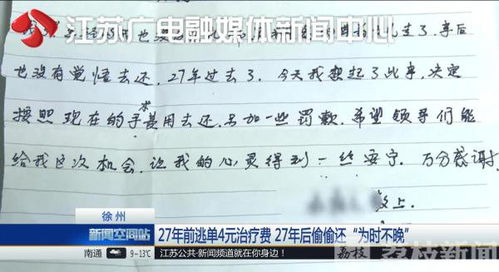 江苏广电融媒体新闻中心
也没有觉悟去还，27年过去了，今天我想起了此事，决定
按照现在的手术费用去还，另加一些罚款，希望领导们能
给我这次机会，让我的心灵得到一些安宁，万分感谢！
敬上.
徐州
新闻空间站
27年前逃单4元治疗费 27年后偷偷还“为时不晚”
南通 9-13℃ 江苏公共·新闻频道就在你身边！
荔枝新闻